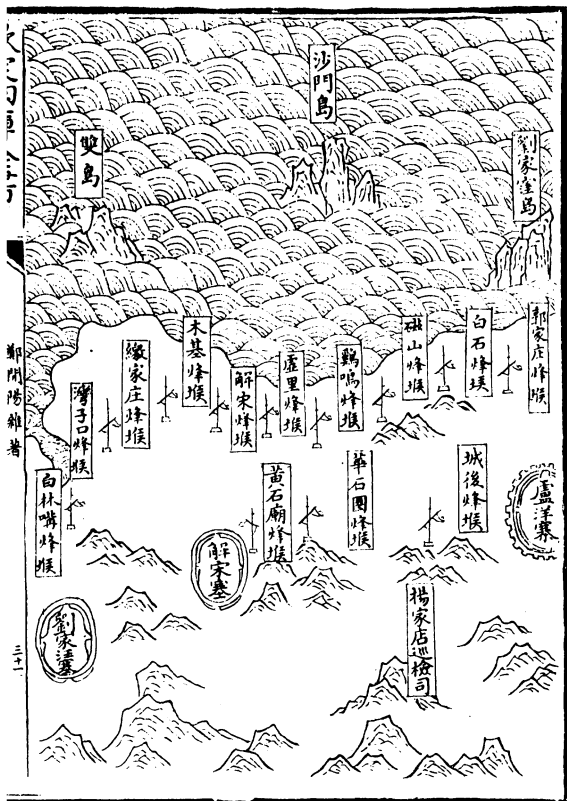 沙門島
雙島
劉家汪島
郭家庄烽堠
白石烽堠
磁山烽堠
鷄鳴烽堠
虛里烽堠
解宋烽堠
木基烽堠
繳家庄烽堠
灣子口烽堠
白林嘴烽堠
盧洋寨
城後烽堠
華石圈烽堠
黄石廟烽堠
解宋寨
劉家汪寨
楊家店巡檢司
鄭開陽雜著
三十一